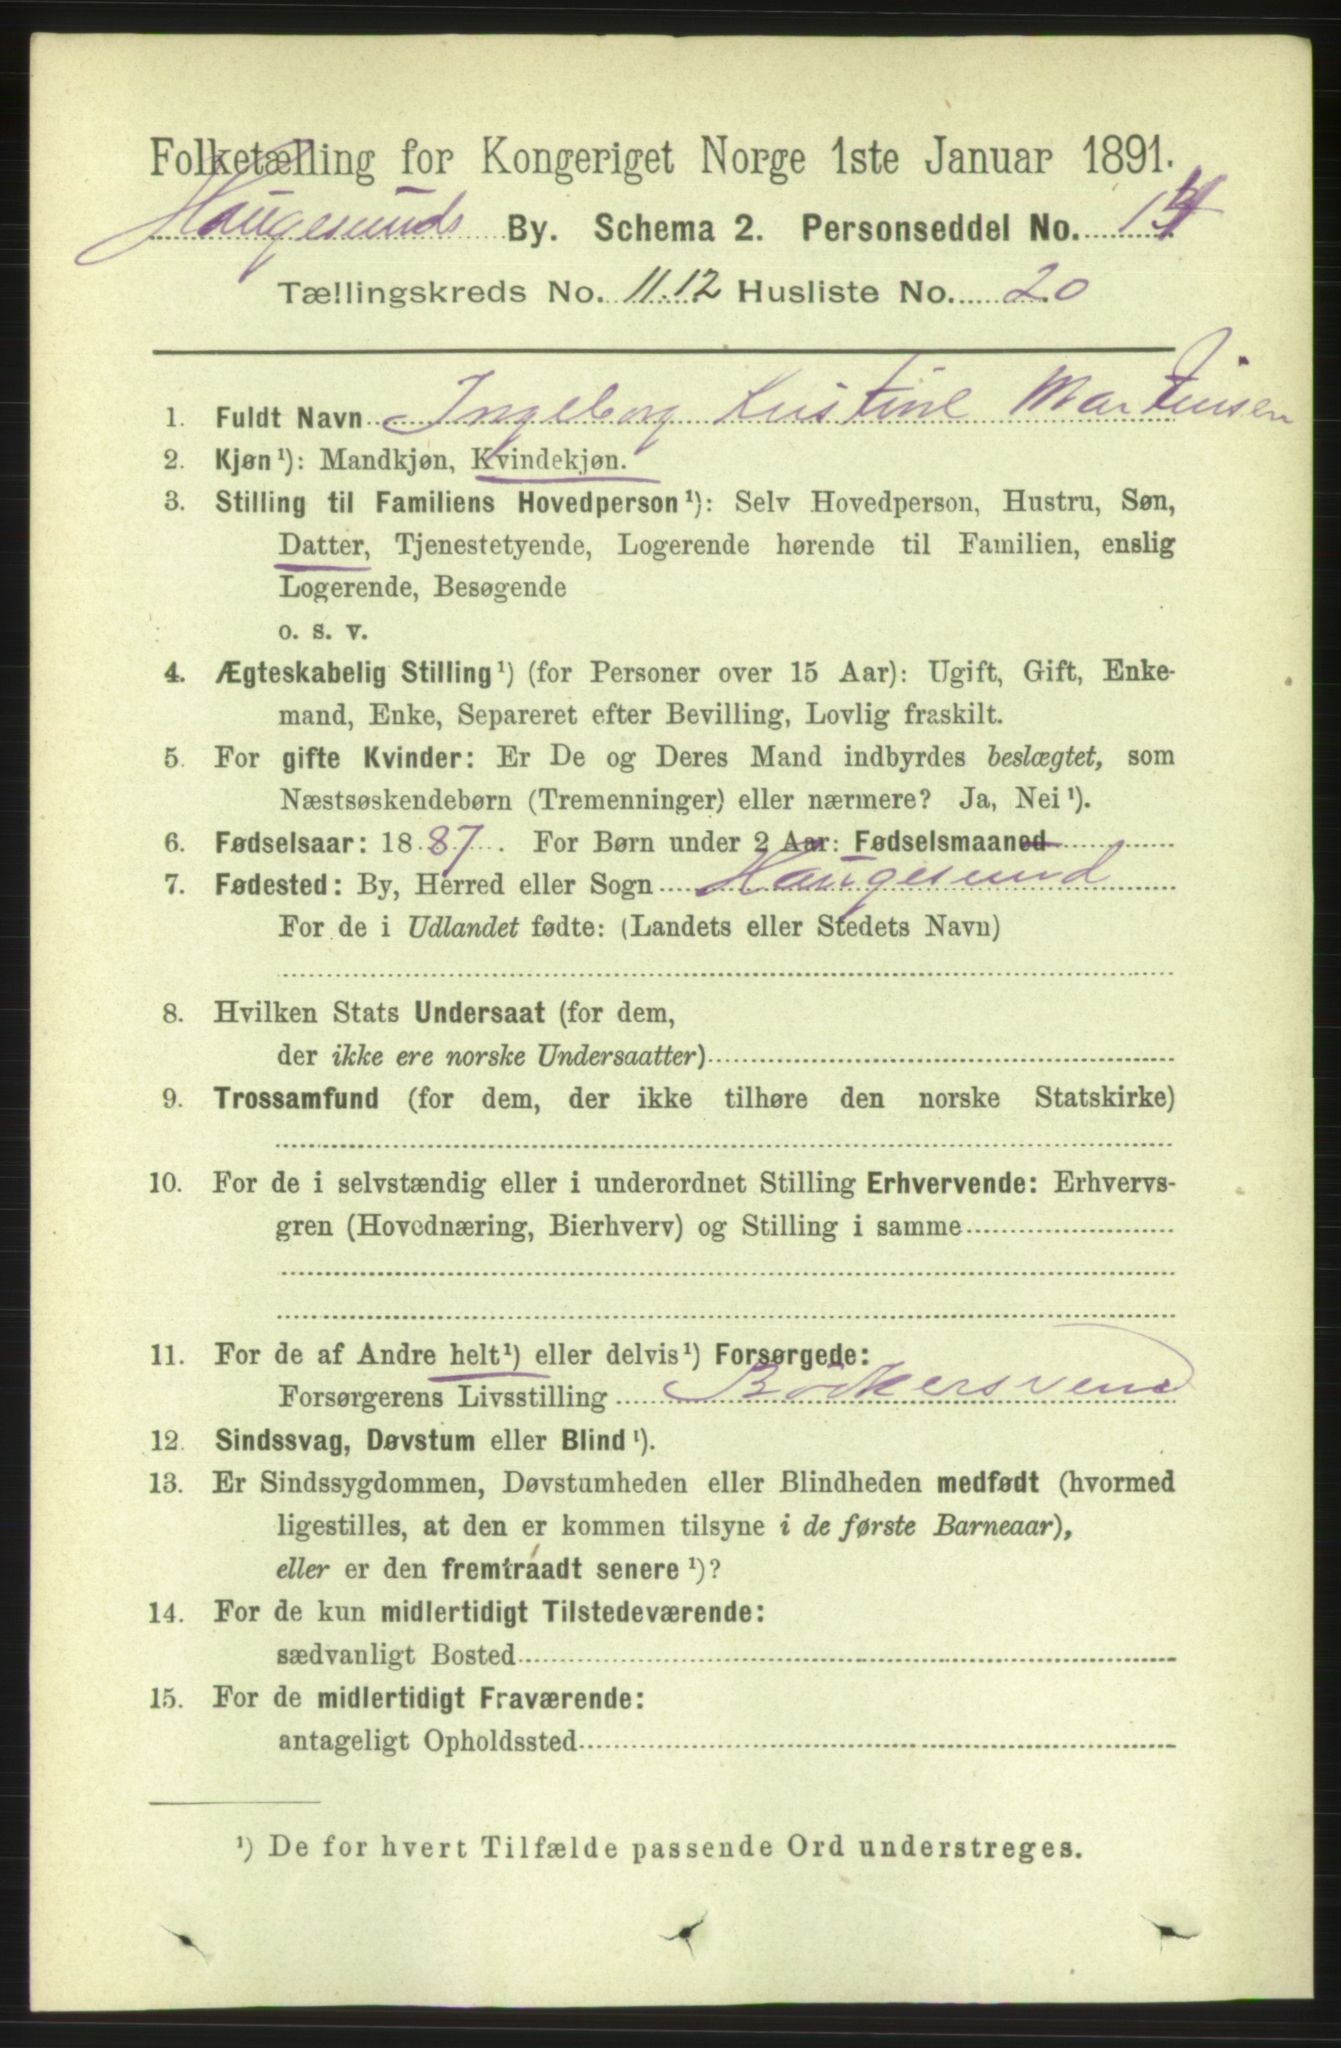 Folketælling for Kongeriget Norge 1ste Januar 1891.
Haugesunds By. Schema 2. Personseddel No. 14
Tællingskreds No. 11.12 Husliste No. 20
1. Fuldt Navn Ingeborg Kristine Martinsen
2. Kjøn¹): Mandkjøn, Kvindekjøn.
3. Stilling til Familiens Hovedperson¹): Selv Hovedperson, Hustru, Søn,
Datter, Tjenestetyende, Logerende hørende til Familien, enslig
Logerende, Besøgende
o. s. v.
4. Ægteskabelig Stilling¹) (for Personer over 15 Aar): Ugift, Gift, Enke-
mand, Enke, Separeret efter Bevilling, Lovlig fraskilt.
5. For gifte Kvinder: Er De og Deres Mand indbyrdes beslægtet, som
Næstsøskendebørn (Tremenninger) eller nærmere? Ja, Nei¹).
6. Fødselsaar: 1887. For Børn under 2 Aar: Fødselsmaaned
7. Fødested: By, Herred eller Sogn Haugesund
For de i Udlandet fødte: (Landets eller Stedets Navn)
8. Hvilken Stats Undersaat (for dem,
der ikke ere norske Undersaatter)
9. Trossamfund (for dem, der ikke tilhøre den norske Statskirke)
10. For de i selvstændig eller i underordnet Stilling Erhvervende: Erhvervs-
gren (Hovednæring, Bierhverv) og Stilling i samme
11. For de af Andre helt¹) eller delvis¹) Forsørgede:
Forsørgerens Livsstilling Bödkersvend
12. Sindssvag, Døvstum eller Blind¹).
13. Er Sindssygdommen, Døvstumheden eller Blindheden medfødt (hvormed
ligestilles, at den er kommen tilsyne i de første Barneaar),
eller er den fremtraadt senere¹)?
14. For de kun midlertidigt Tilstedeværende:
sædvanligt Bosted
15. For de midlertidigt Fraværende:
antageligt Opholdssted
¹) De for hvert Tilfælde passende Ord understreges.